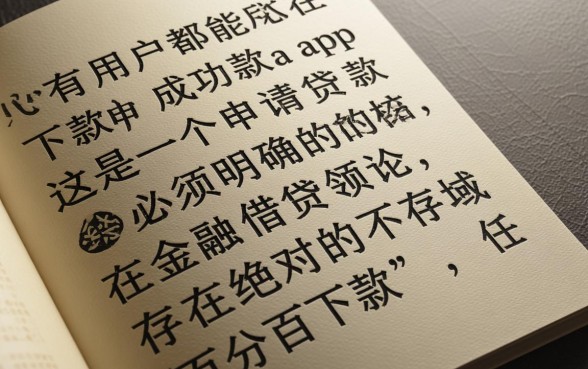 有用户都能在
下款申 成功款a app
这是一个申请贷款
必须明确的的
在金融借贷领论，
存在绝对的不存域
百分百下款”，任